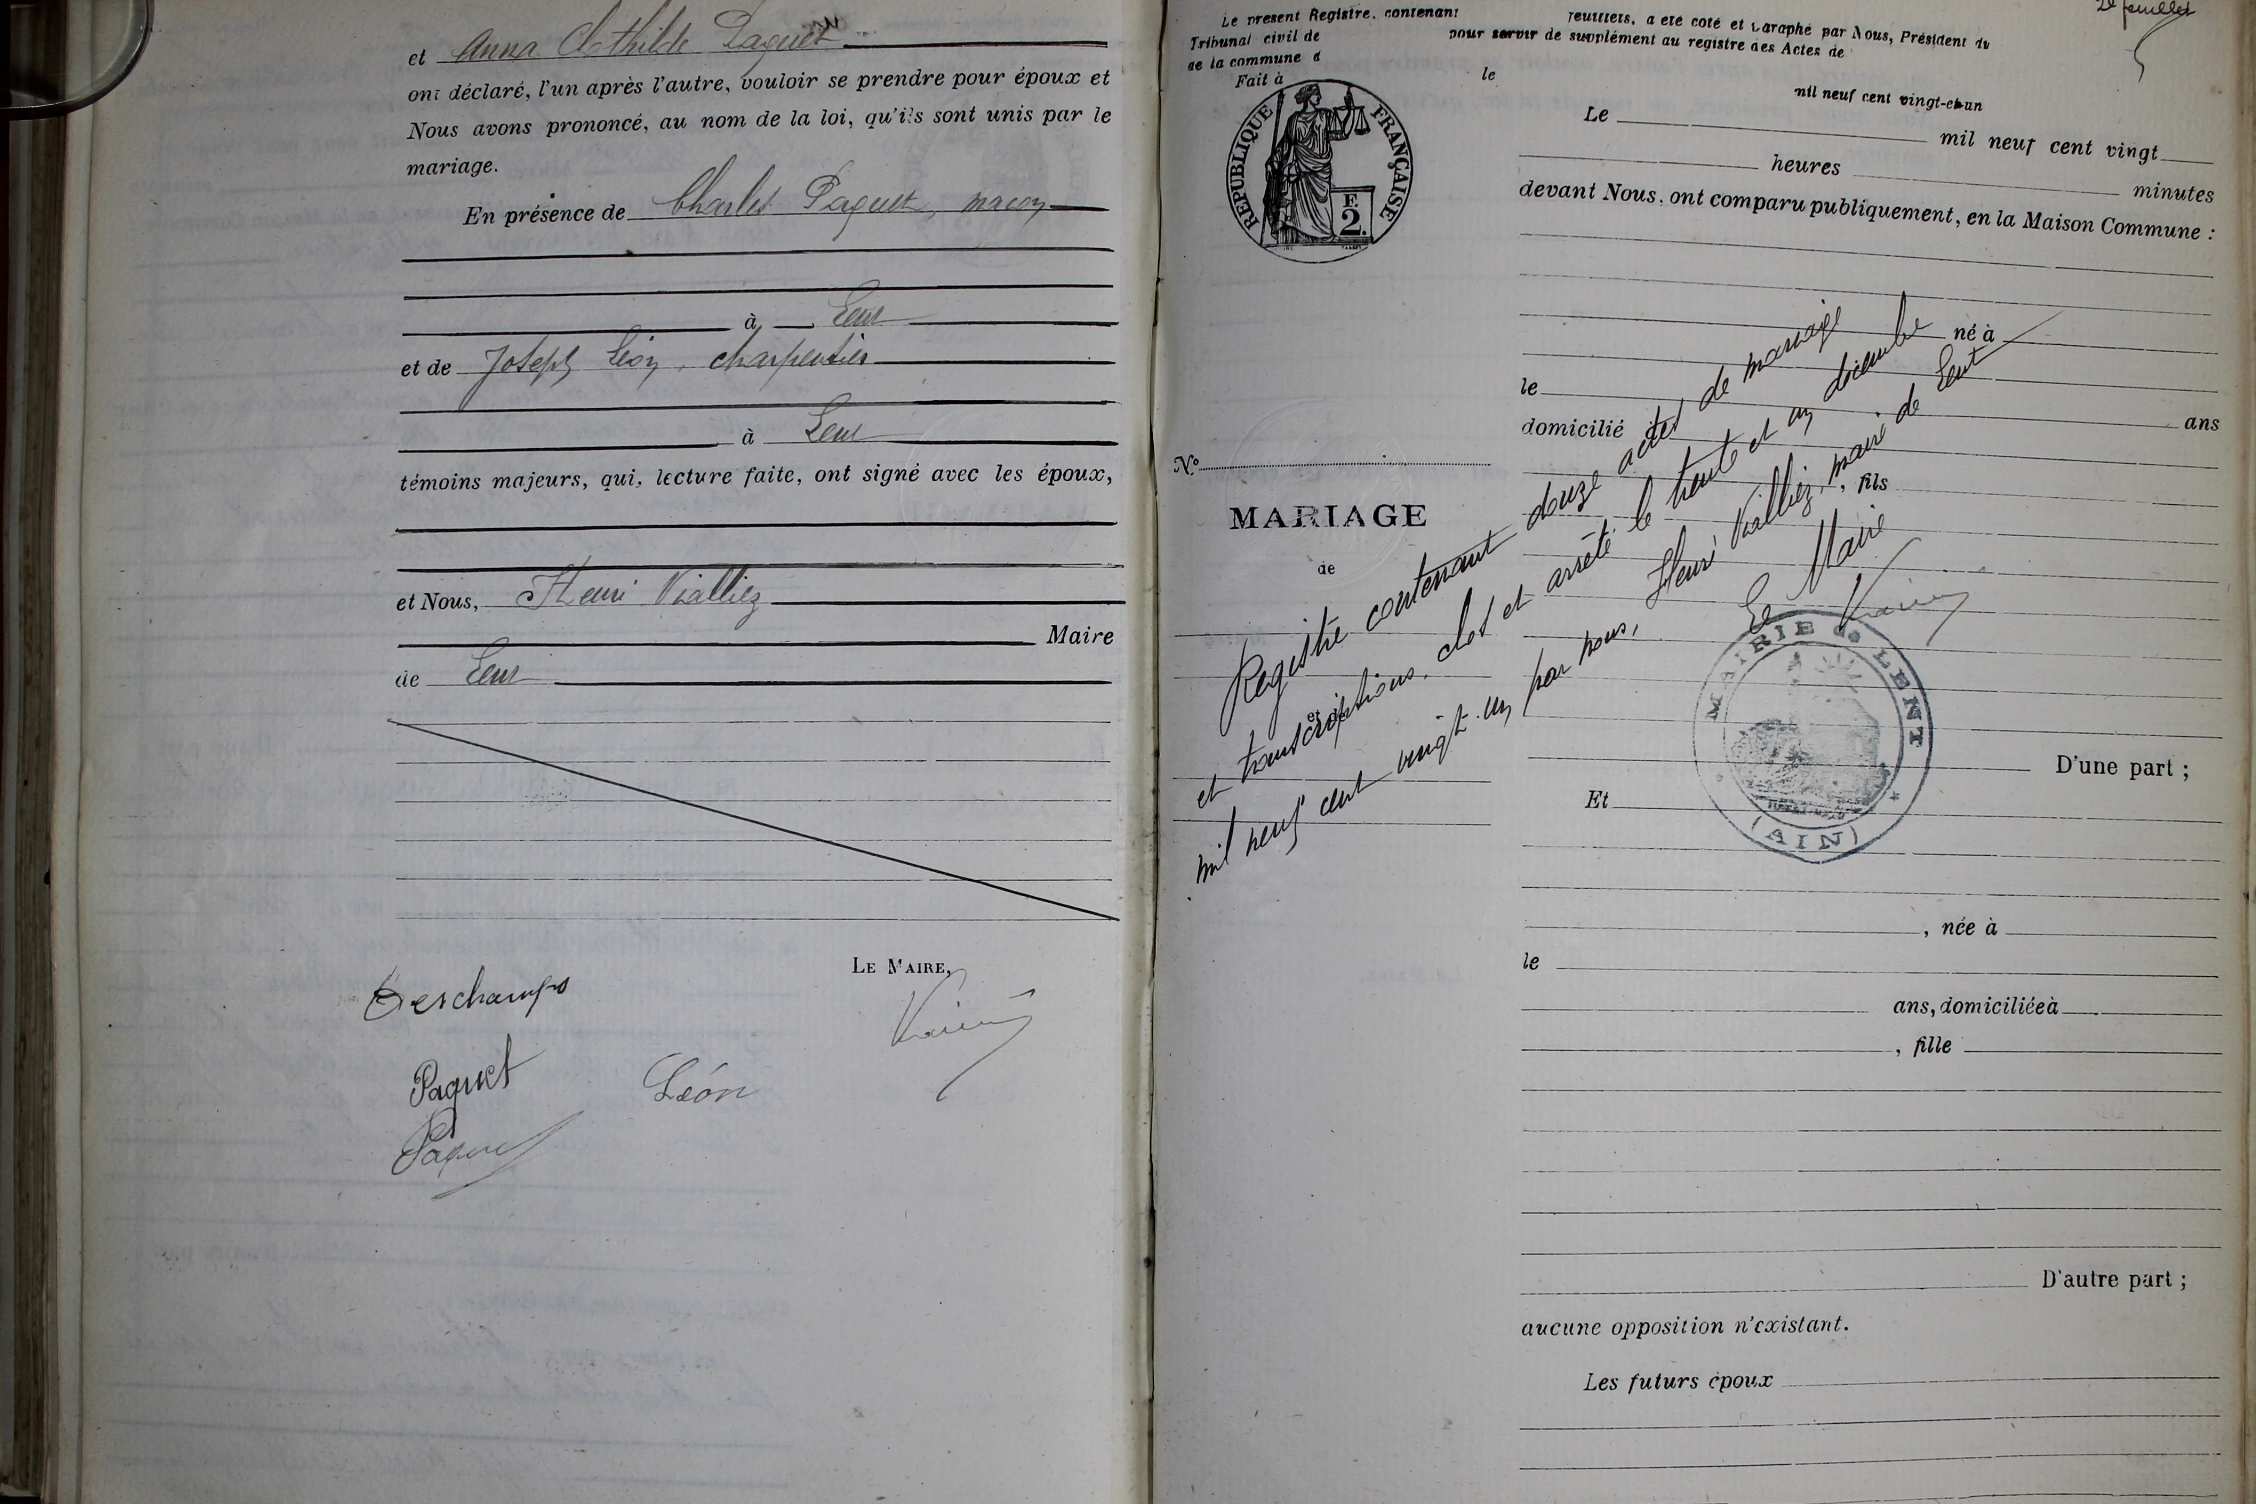 et Anna Clothilde Paquet
ont déclaré, l'un après l'autre, vouloir se prendre pour époux et
Nous avons prononcé, au nom de la loi, qu'ils sont unis par le
mariage.
En présence de Charles Paquet, maçon
à Lent
et de Joseph Léon, charpentier
à Lent
témoins majeurs, qui, lecture faite, ont signé avec les époux,
et Nous, Henri Vialliez
Maire
de Lent
LE MAIRE,
Deschamps
Paquet
Léon
Paquet
2e feuillet
Le présent Registre, contenant feuillets, a été coté et paraphé par Nous, Président du
Tribunal civil de pour servir de supplément au registre des Actes de
de la commune d
Fait à le
mil neuf cent vingt-et-un
REPUBLIQUE FRANÇAISE
E
2.
Le mil neuf cent vingt
heures minutes
devant Nous, ont comparu publiquement, en la Maison Commune :
né à
le
domicilié ans
fils
No
MARIAGE
de
et de
Registre contenant douze actes de mariage
et transcriptions, clos et arrêté le trente et un décembre
mil neuf cent vingt-un par nous, Henri Vialliez, maire de Lent
Le Maire
MAIRIE de LENT
(AIN)
D'une part ;
Et
, née à
le
ans, domiciliée à
, fille
D'autre part ;
aucune opposition n'existant.
Les futurs époux